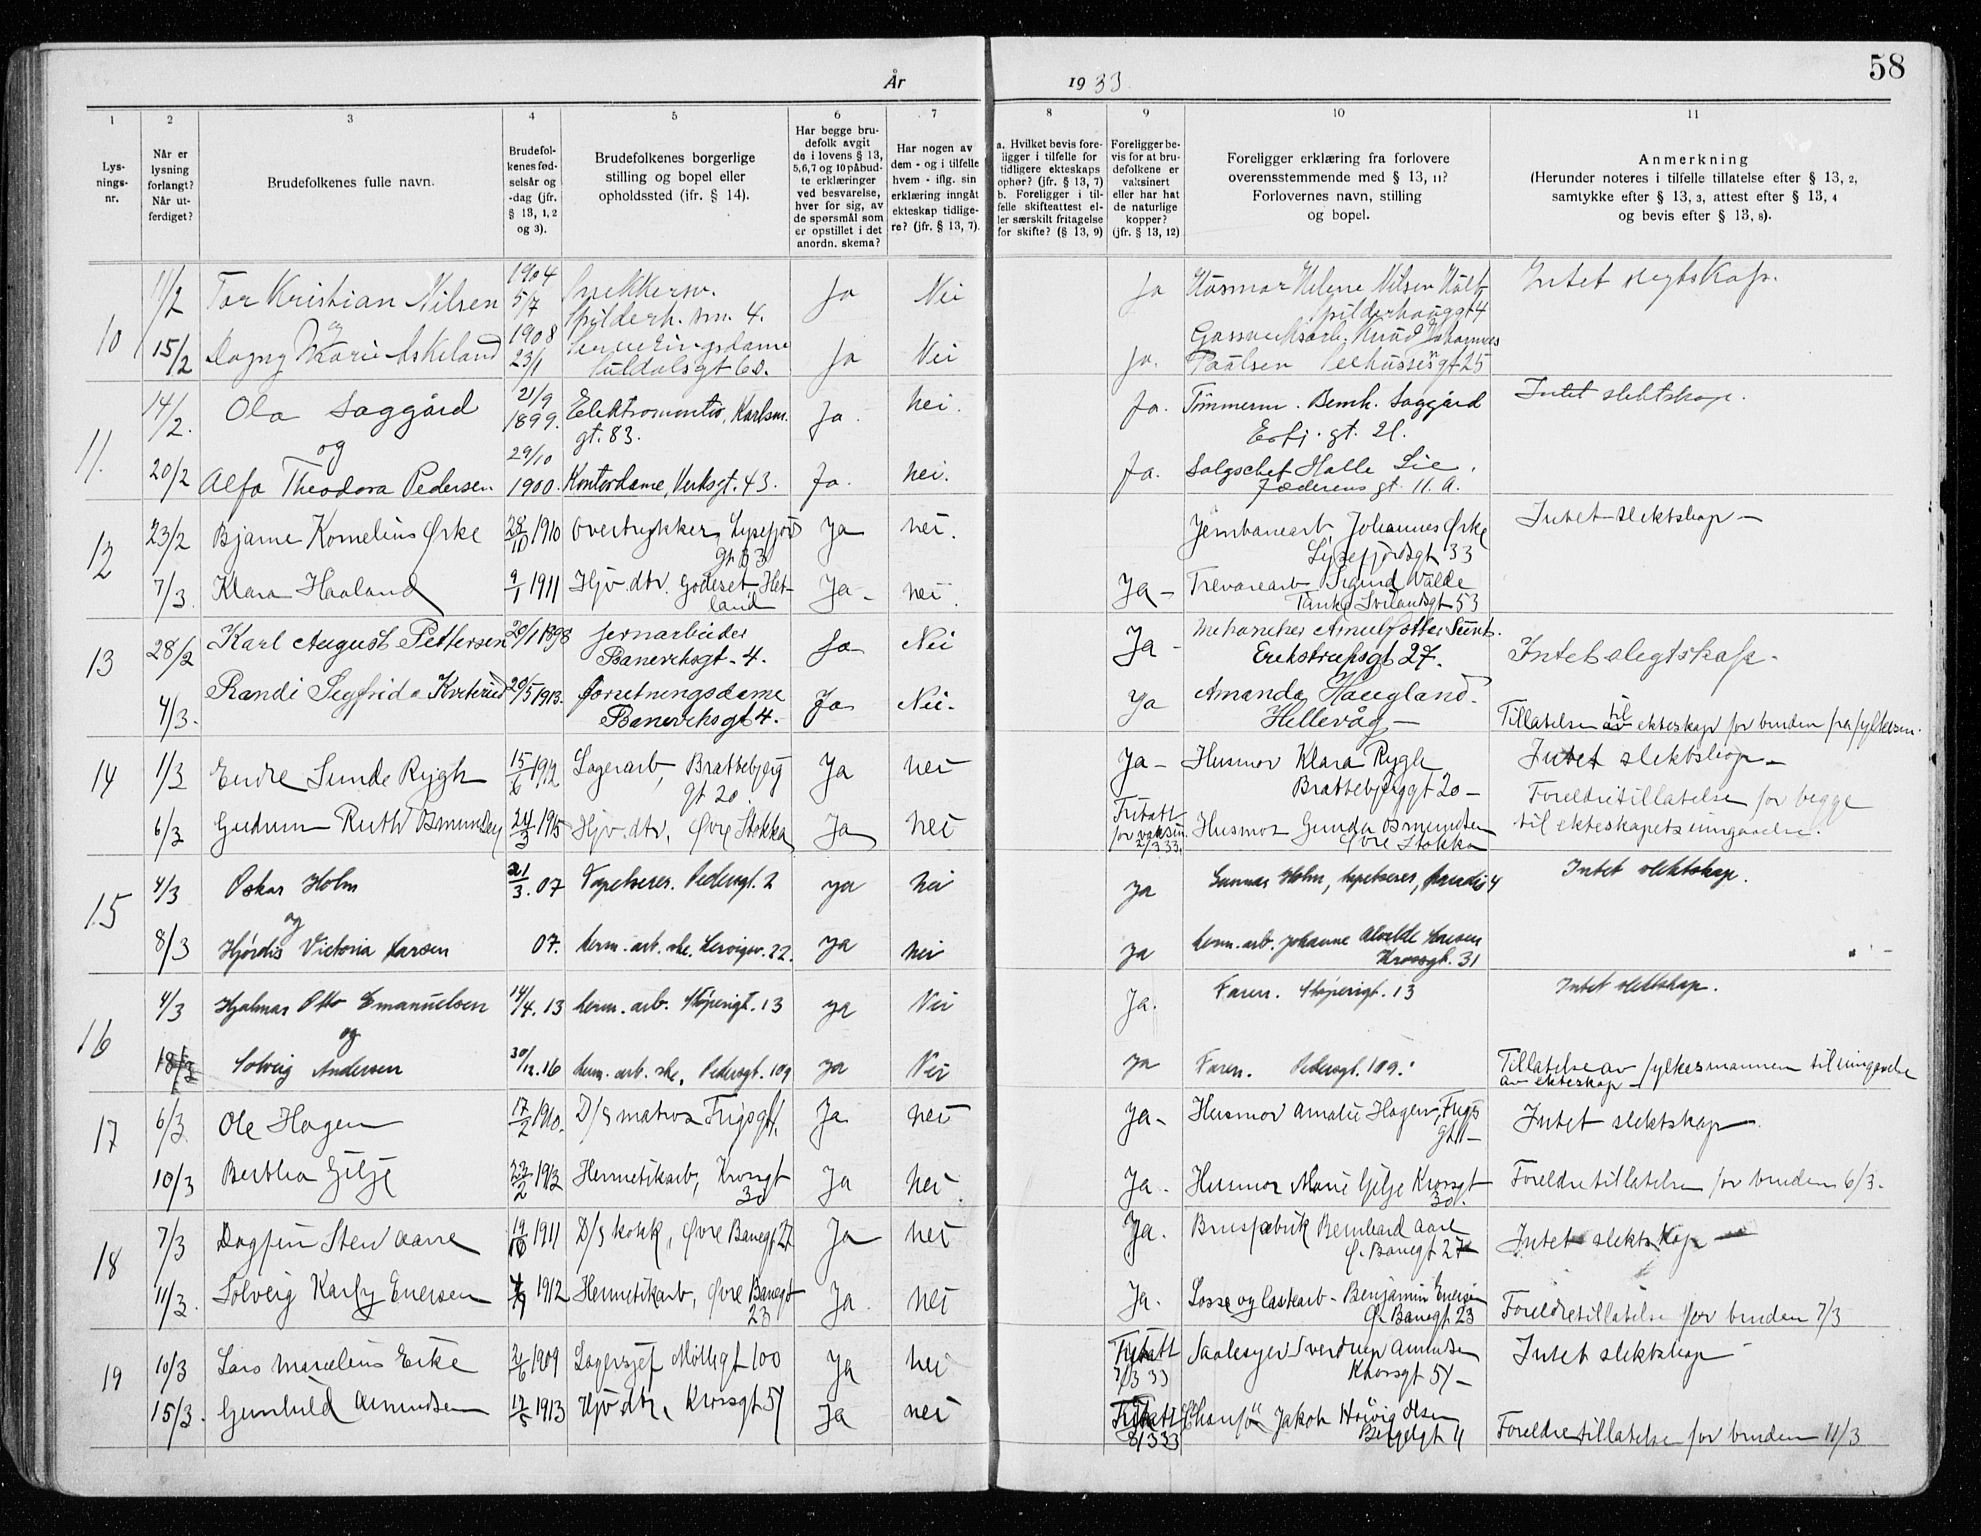 58
År 1933.
1 2 3 4 5 6 7 8 9 10 11
Lys-
nings-
nr.
Når er
lysning
forlangt?
Når ut-
ferdiget?
Brudefolkenes fulle navn.
Brudefol-
kenes fød-
selsår og
-dag (jfr.
§ 13, 1, 2
og 3).
Brudefolkenes borgerlige
stilling og bopel eller
opholdssted (jfr. § 14).
Har begge bru-
defolk avgit
de i lovens § 13,
5,6,7 og 10 påbud-
te erklæringer
ved besvarelse,
hver for sig, av
de spørsmål som
er opstillet i det
anordn. skema?
Har nogen av
dem - og i tilfelle
hvem - iflg. sin
erklæring inngått
ekteskap tidlige-
re? (jfr. § 13, 7).
a. Hvilket bevis fore-
ligger i tilfelle for
tidligere ekteskaps
ophør? (jfr. § 13, 7)
b. Foreligger i til-
felle skifteattest el-
ler særskilt fritagelse
for skifte? (§ 13, 9)
Foreligger be-
vis for at bru-
defolkene er
vaksinert
eller har hat
de naturlige
kopper?
(jfr. § 13, 12)
Foreligger erklæring fra forlovere
overensstemmende med § 13, 11?
Forlovernes navn, stilling
og bopel.
Anmerkning
(Herunder noteres i tilfelle tillatelse efter § 13, 2,
samtykke efter § 13, 3, attest efter § 13, 4
og bevis efter § 13, 8).
10 11/2 Tor Kristian Nilsen 1904 5/7 Snekkersv. Ja Nei Ja Husmor Helene Nilsen Intet slegtskap.
Spilderhauggt 4
15/2 Dagny Marie Askeland 1908 23/1 Suldalsgt 6d. Ja Nei Ja. Knud Johannes
Paulsen 25
11. 14/2. Ola Saggård 21/9 1899. Elektromontør, Karlsm. Ja. nei. Ja. Tømmerm. Bernh. Saggård Intet slektskap.
gt. 83. Erfj. gt. 21.
og
20/2 Alfa Theodora Pedersen. 29/10 1900. Kontordame, Verksgt. 43. Ja. nei. Ja. Salgschef Halle Lie.
Jæderens gt. 11. a.
12 23/2 Bjarne Kornelius Ørke 28/11 1910 Overtrykker, Lysefjords Ja nei. Jernbanearb. Johannes Ørke Intet slektskap -
gt 33 Lysefjordsgt 33
7/3 Klara Haaland 9/1 1911 Hjv. dtr. Godeset, Het- Ja - nei. Ja - Trevarearb Sigurd Valde
land Tanke Svilandsgt 53
13 28/2 Karl August Pettersen 20/1 1898 Jernarbeider Ja Nei Ja - Mekaniker
Baneviksgt - 4. Erichstrupsgt 27. Intet slegtskap.
4/3. Randi Segfrida 20/5 1913. Forretningsdame Ja Nei. Ja Amanda Haugland.
Baneviksgt 4. Hellevåg - Tillatelse til ekteskap for bruden fra fylkesm.
14 1/3 Endre Sunde Rygh 15/6 1912 Lagerarb, Brattebjerg Ja nei Ja - Husmor Klara Rygh Intet slektskap -
gt 20. Brattebjerggt 20 - Foreldretillatelse for begge
6/3 Gudrun Ruth Osmundsen 24/3 1915 Hjv. dtr, Øvre Stokka Ja nei Fritatt Husmor Gunda Osmundsen til ekteskapets inngaaelse.
for vaksin. 2/3 33. Øvre Stokka
15 4/3 Oskar Holm 21/3. 07 Tapetserer. Pedersgt. 2 ya nei ya Gunnar Holm, tapetserer, 4 Intet slektskap.
og
8/3 Hjørdis Victoria Larsen 07. herm. arb. ske. Lervigsv. 22. ya nei ya herm. arb. Johanne Larsen
Krossgt. 31
16 4/3 Hjalmar Otto Emanuelsen 14/4. 13 herm. arb. Støperigt. 13 ya Nei Ja. Faren. Støperigt. 13 Intet slektskap.
og
Solveig Andersen 30/12. 16 herm. arb. ske, Pedersgt. 109 ya Nei ya Faren. Pedersgt. 109. Tillatelse av fylkesmannen til inngaaelse
av ekteskap -
17 6/3 Ole Hagen 17/2 1910. D/S matros Frigsgt 1. Ja nei Ja - Husmor Amalie Hagen, Frigs Intet slektskap.
gt 1 -
10/3 Bertha Gilje 23/2 1913 Hermetikarb, Krosgt Ja nei. Ja - Husmor Marie Gilje Krossgt Foreldretillatelse for bruden 6/3.
30 30.
18 7/3 Dagfin Sten Aare 19/10 1911 D/S kokk, Øvre Banegt. 27 Ja nei Ja. Brusfabrik Bernhard Aare Intet slektskap -
Ø. Banegt 27
11/3. Solveig Karly Enersen 1912 Hermetikarb, Øvre Banegt Ja. nei Ja. Losse og lastearb - Benjamin Enersen
23 Ø. Banegt 23 Foreldretillatelse for bruden 7/3
19 10/3 Lars Marcelius Eike 1909 Lagersjef Møllegt 100 Ja nei Fritatt Saaleseyer Sverdrup Amundsen Intet slektskap -
7/3 33 Krossgt 51 -
15/3. Gunhild Amundsen 17/5 1913 Hjv. dtr, Krossgt 51 Ja nei Fritatt Chaufør Jakob Olsen
8/3 33 Bergelgt 11 Foreldretillatelse for bruden 11/3